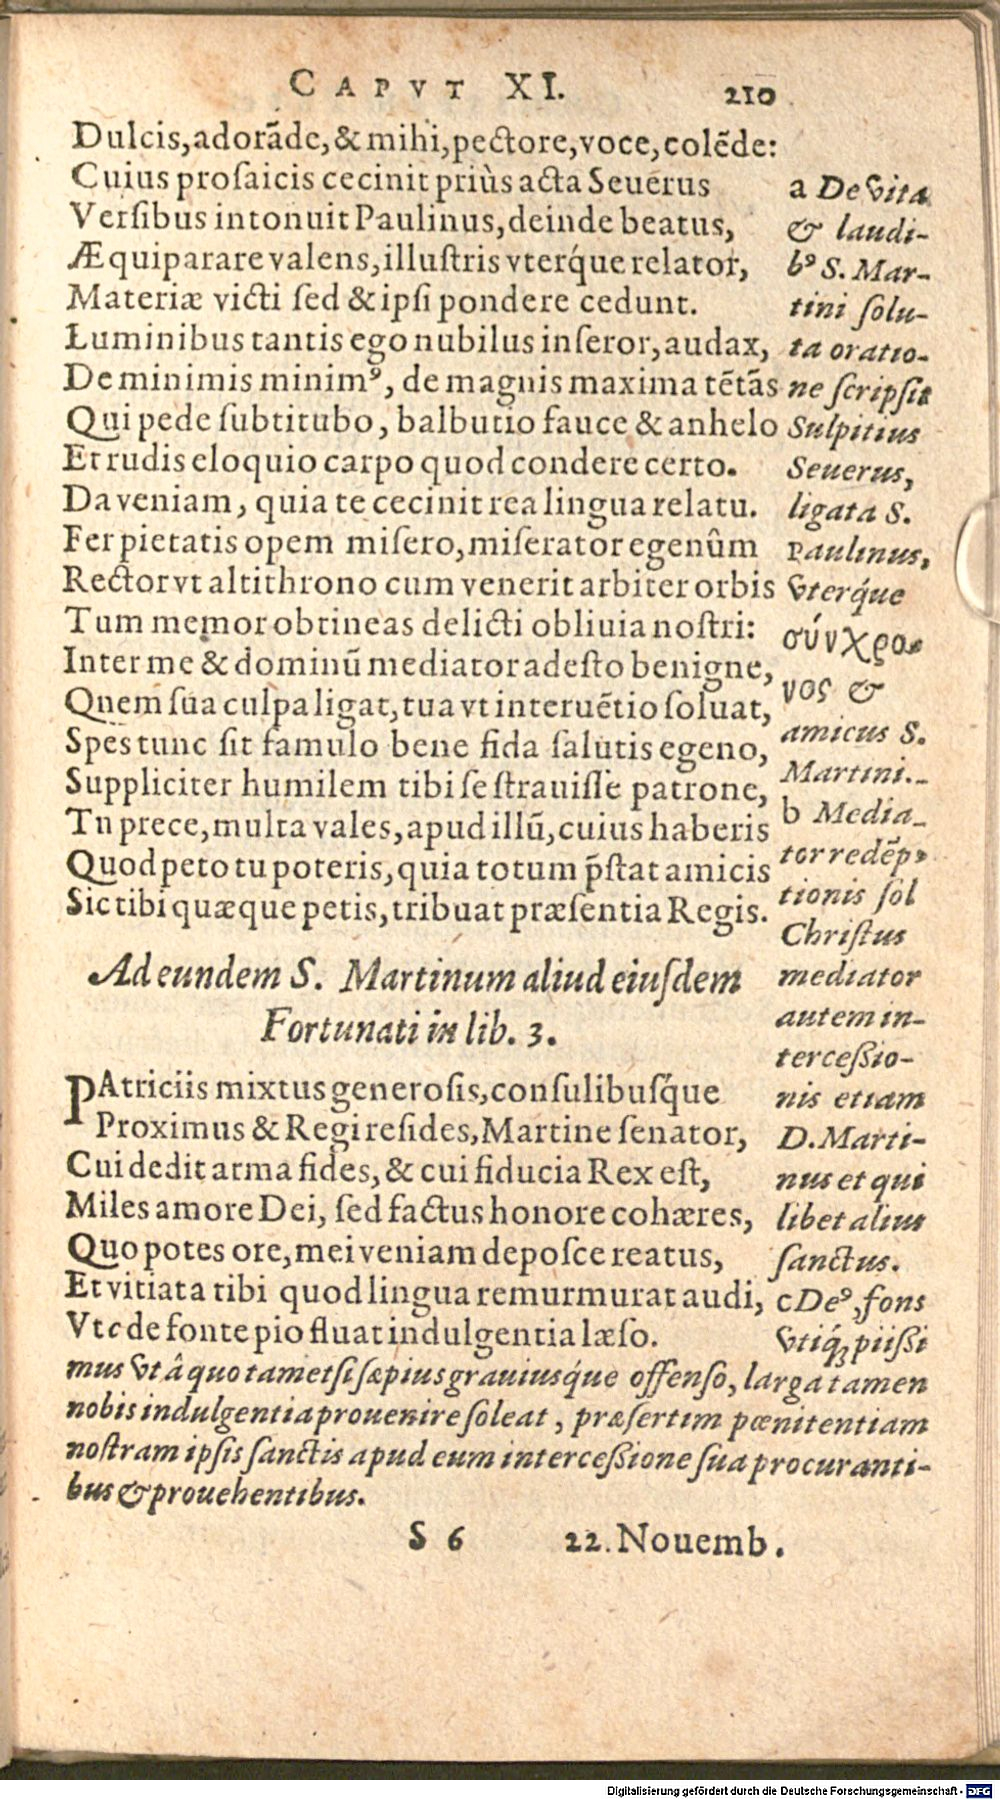 CAPVT XI. 210
Dulcis, adorãde, & mihi, pectore, voce, colẽde:
Cuius prosaicis cecinit priùs acta Seuerus
Versibus intonuit Paulinus, deinde beatus,
Æquiparare valens, illustris vterq́ue relator,
Materiæ victi sed & ipsi pondere cedunt.
Luminibus tantis ego nubilus inseror, audax,
De minimis minimꝰ, de magnis maxima tẽtãs
Qui pede subtitubo, balbutio fauce & anhelo
Et rudis eloquio carpo quod condere certo.
Da veniam, quia te cecinit rea lingua relatu.
Fer pietatis opem misero, miserator egenûm
Rector vt altithrono cum venerit arbiter orbis
Tum memor obtineas delicti obliuia nostri:
Inter me & dominũ mediator adesto benigne,
Quem sua culpa ligat, tua vt interuẽtio soluat,
Spes tunc sit famulo bene fida salutis egeno,
Suppliciter humilem tibi se strauisse patrone,
Tu prece, multa vales, apud illũ, cuius haberis
Quod peto tu poteris, quia totum p̃stat amicis
Sic tibi quæque petis, tribuat præsentia Regis.
a De vita
& laudi-
bꝰ S. Mar-
tini solu-
ta oratio-
ne scripsit
Sulpitius
Seuerus,
ligata S.
Paulinus,
vterq́ue
σύνχρο-
νος &
amicus S.
Martini.
b Media-
tor redẽp-
tionis sol
Christus
mediator
autem in-
tercessio-
nis etiam
D. Marti-
nus et qui
libet alius
sanctus.
Ad eundem S. Martinum aliud eiusdem
Fortunati in lib. 3.
PAtriciis mixtus generosis, consulibusq́ue
Proximus & Regi resides, Martine senator,
Cui dedit arma fides, & cui fiducia Rex est,
Miles amore Dei, sed factus honore cohæres,
Quo potes ore, mei veniam deposce reatus,
Et vitiata tibi quod lingua remurmurat audi,
Vt c de fonte pio fluat indulgentia læso.
c Deꝰ, fons
vtiq́; piissi
mus vt â quo tametsi sæpius grauiusq́ue offenso, larga tamen
nobis indulgentia prouenire soleat, præsertim pœnitentiam
nostram ipsis sanctis apud eum intercessione sua procuranti-
bus & prouehentibus.
S 6 22. Nouemb.
Digitalisierung gefördert durch die Deutsche Forschungsgemeinschaft - DFG